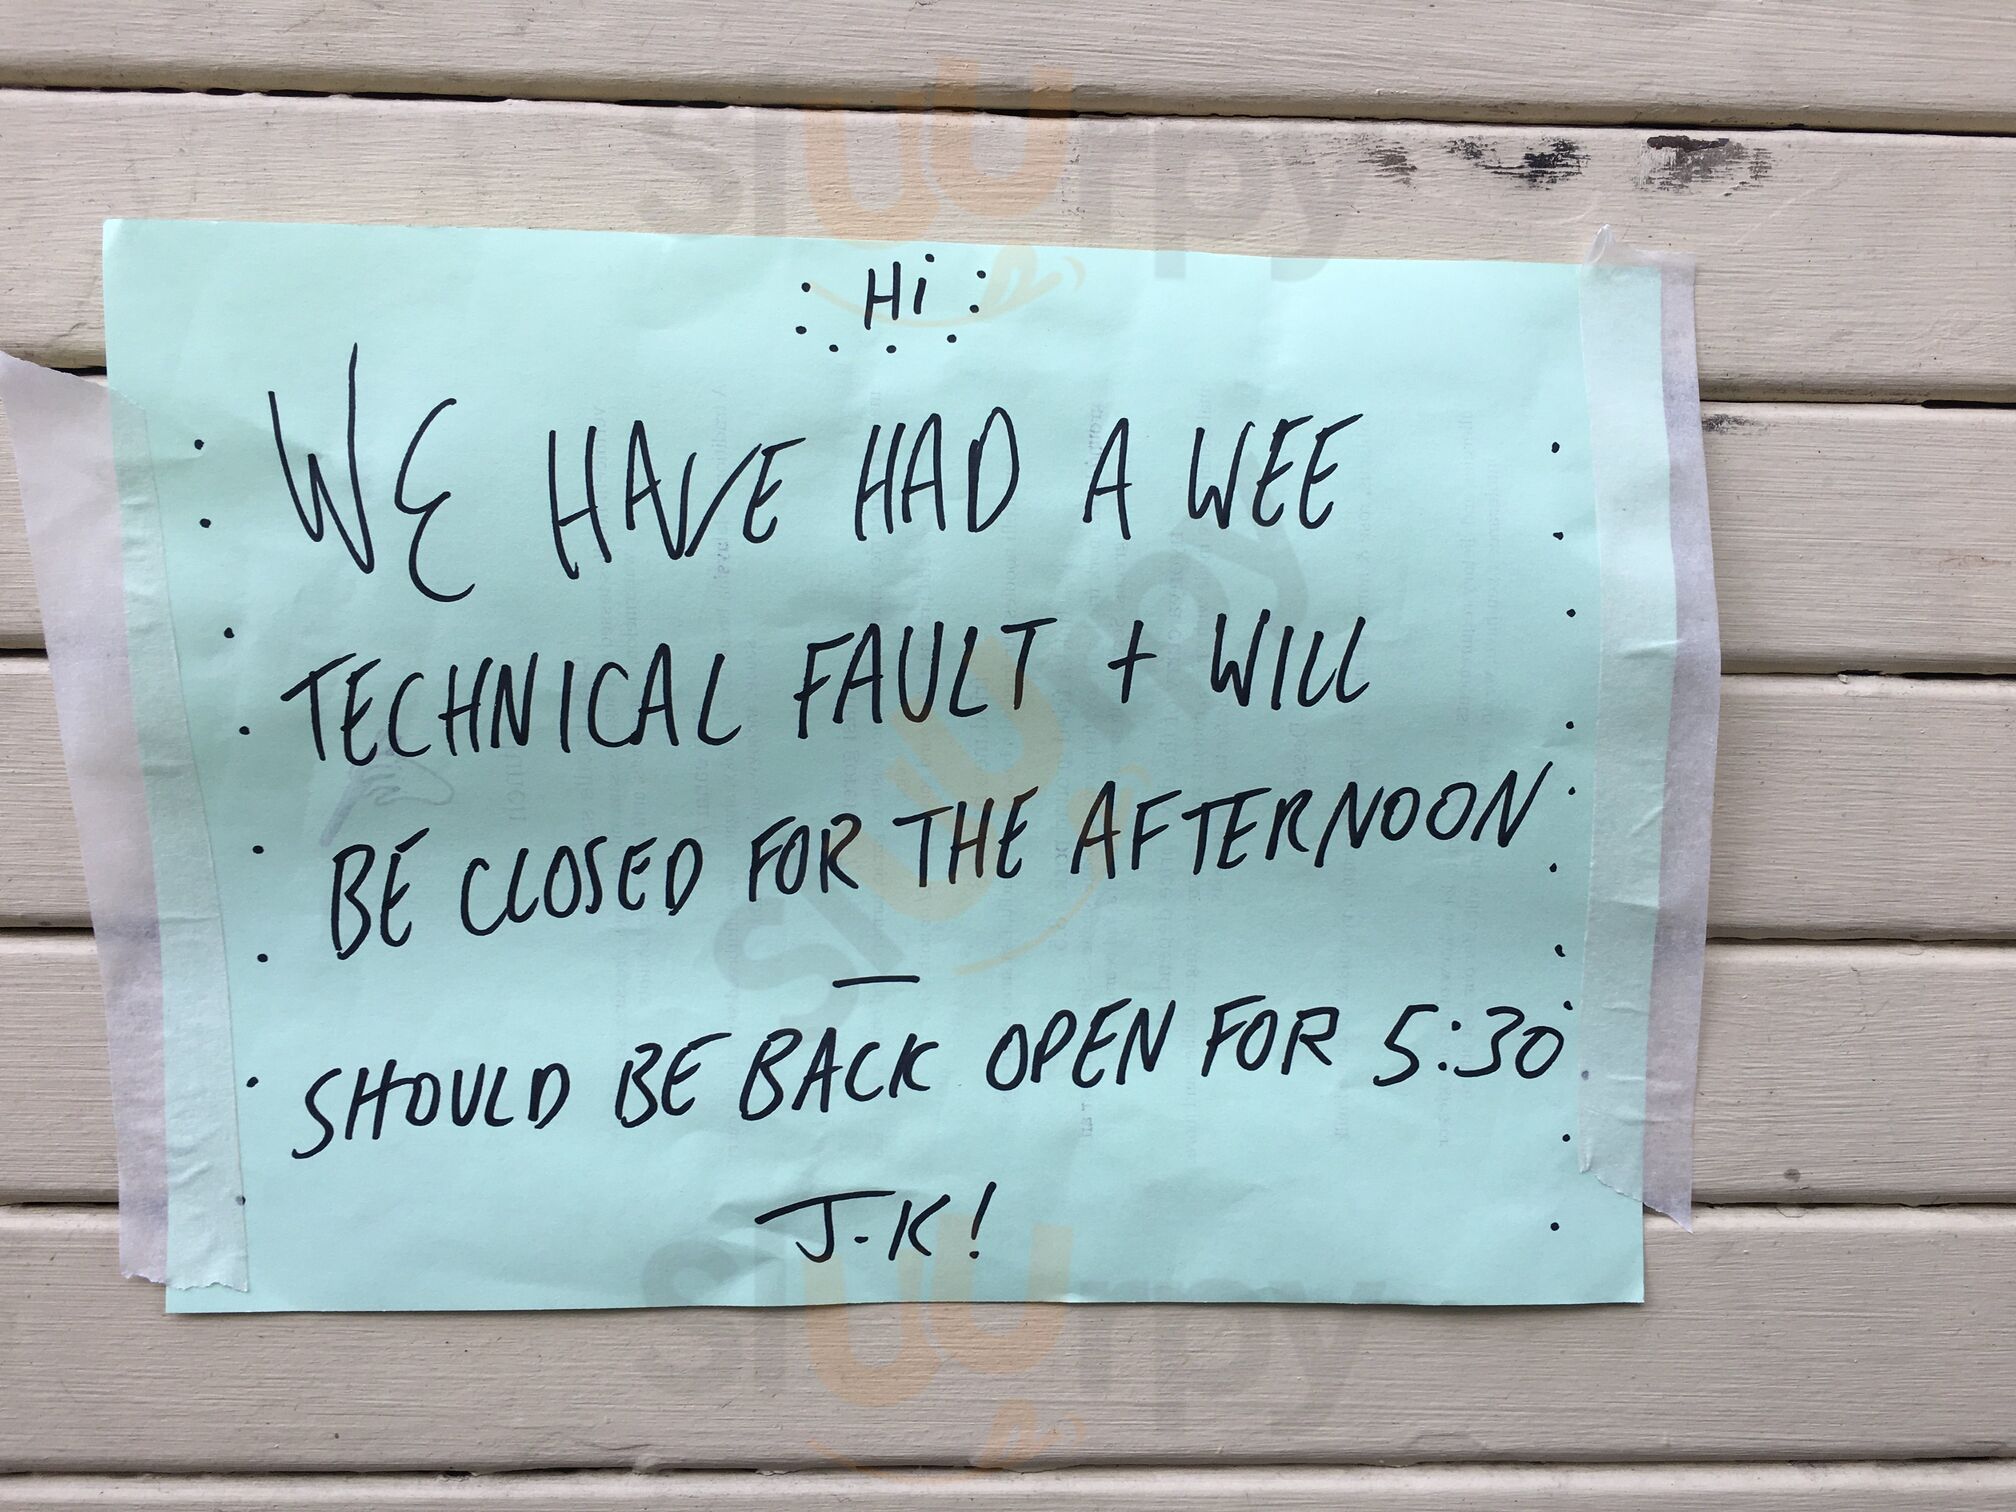 Hi
WE HAVE HAD A WEE
TECHNICAL FAULT + WILL
BE CLOSED FOR THE AFTERNOON
—
SHOULD BE BACK OPEN FOR 5:30
J-K!
sluurpy
sluurpy
sluurpy